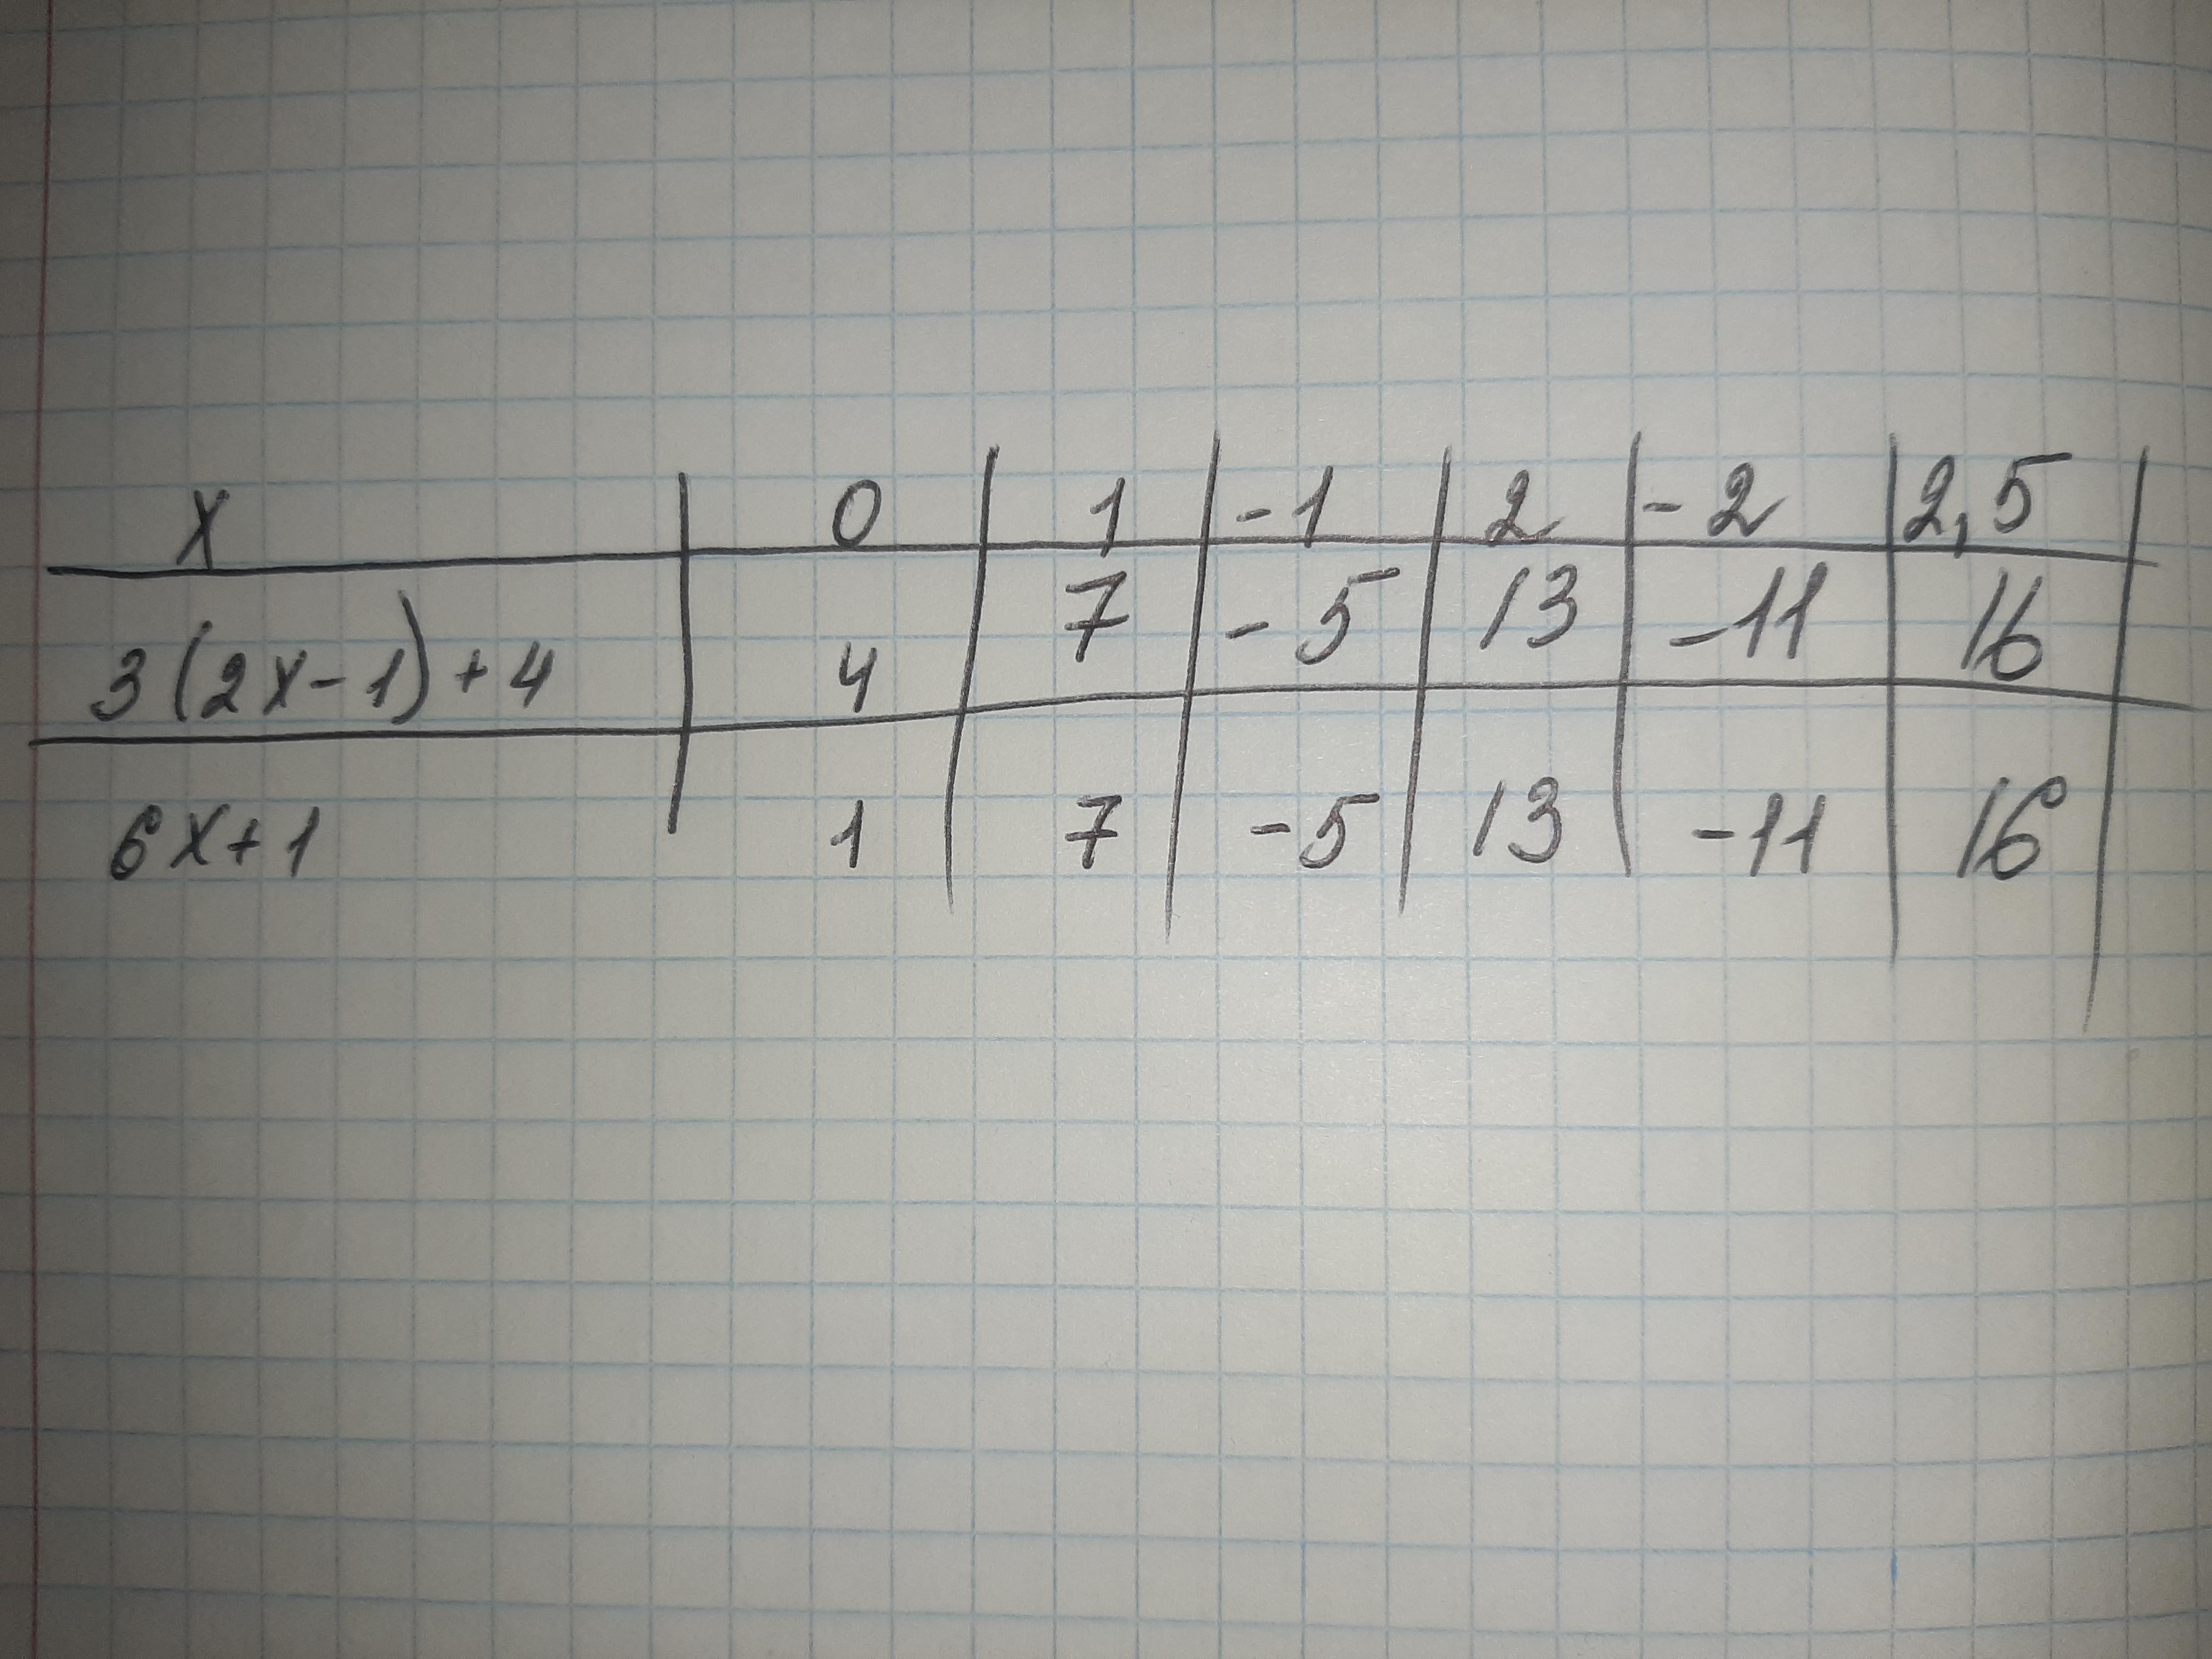 x 0 1 -1 2 -2 2,5
3(2x-1)+4 4 7 -5 13 -11 16
6x+1 1 7 -5 13 -11 16